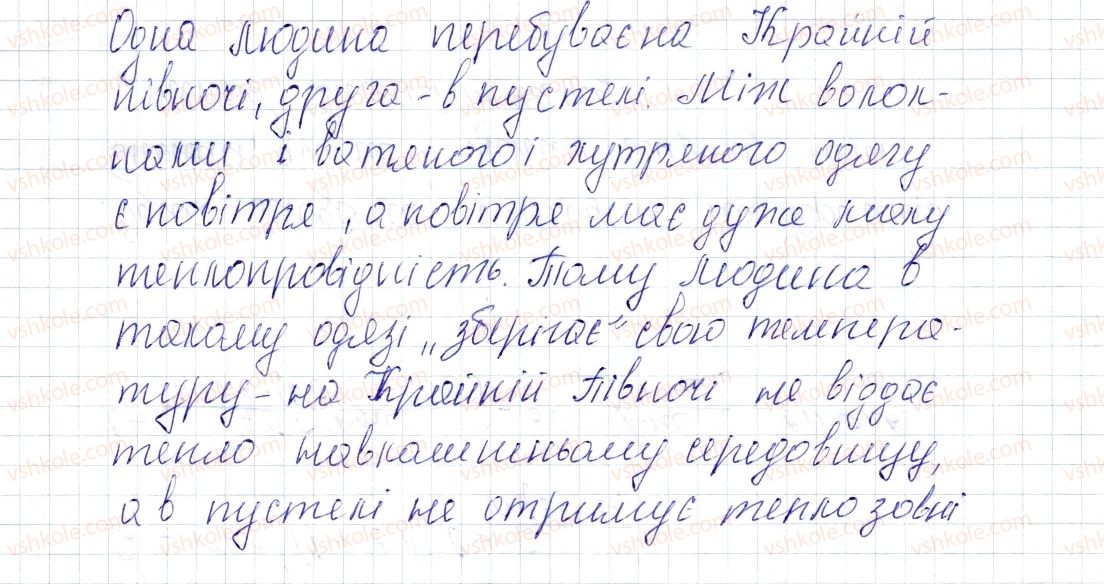 Одна людина перебуває на Крайній
півночі, друга - в пустелі. Між волок-
нами і ватяного і хутряного одягу
є повітря, а повітря має дуже малу
теплопровідність. Тому людина в
такому одязі „зберігає" свою темпера-
туру - на Крайній Півночі не віддає
тепло навколишньому середовищу,
а в пустелі не отримує тепло зовні